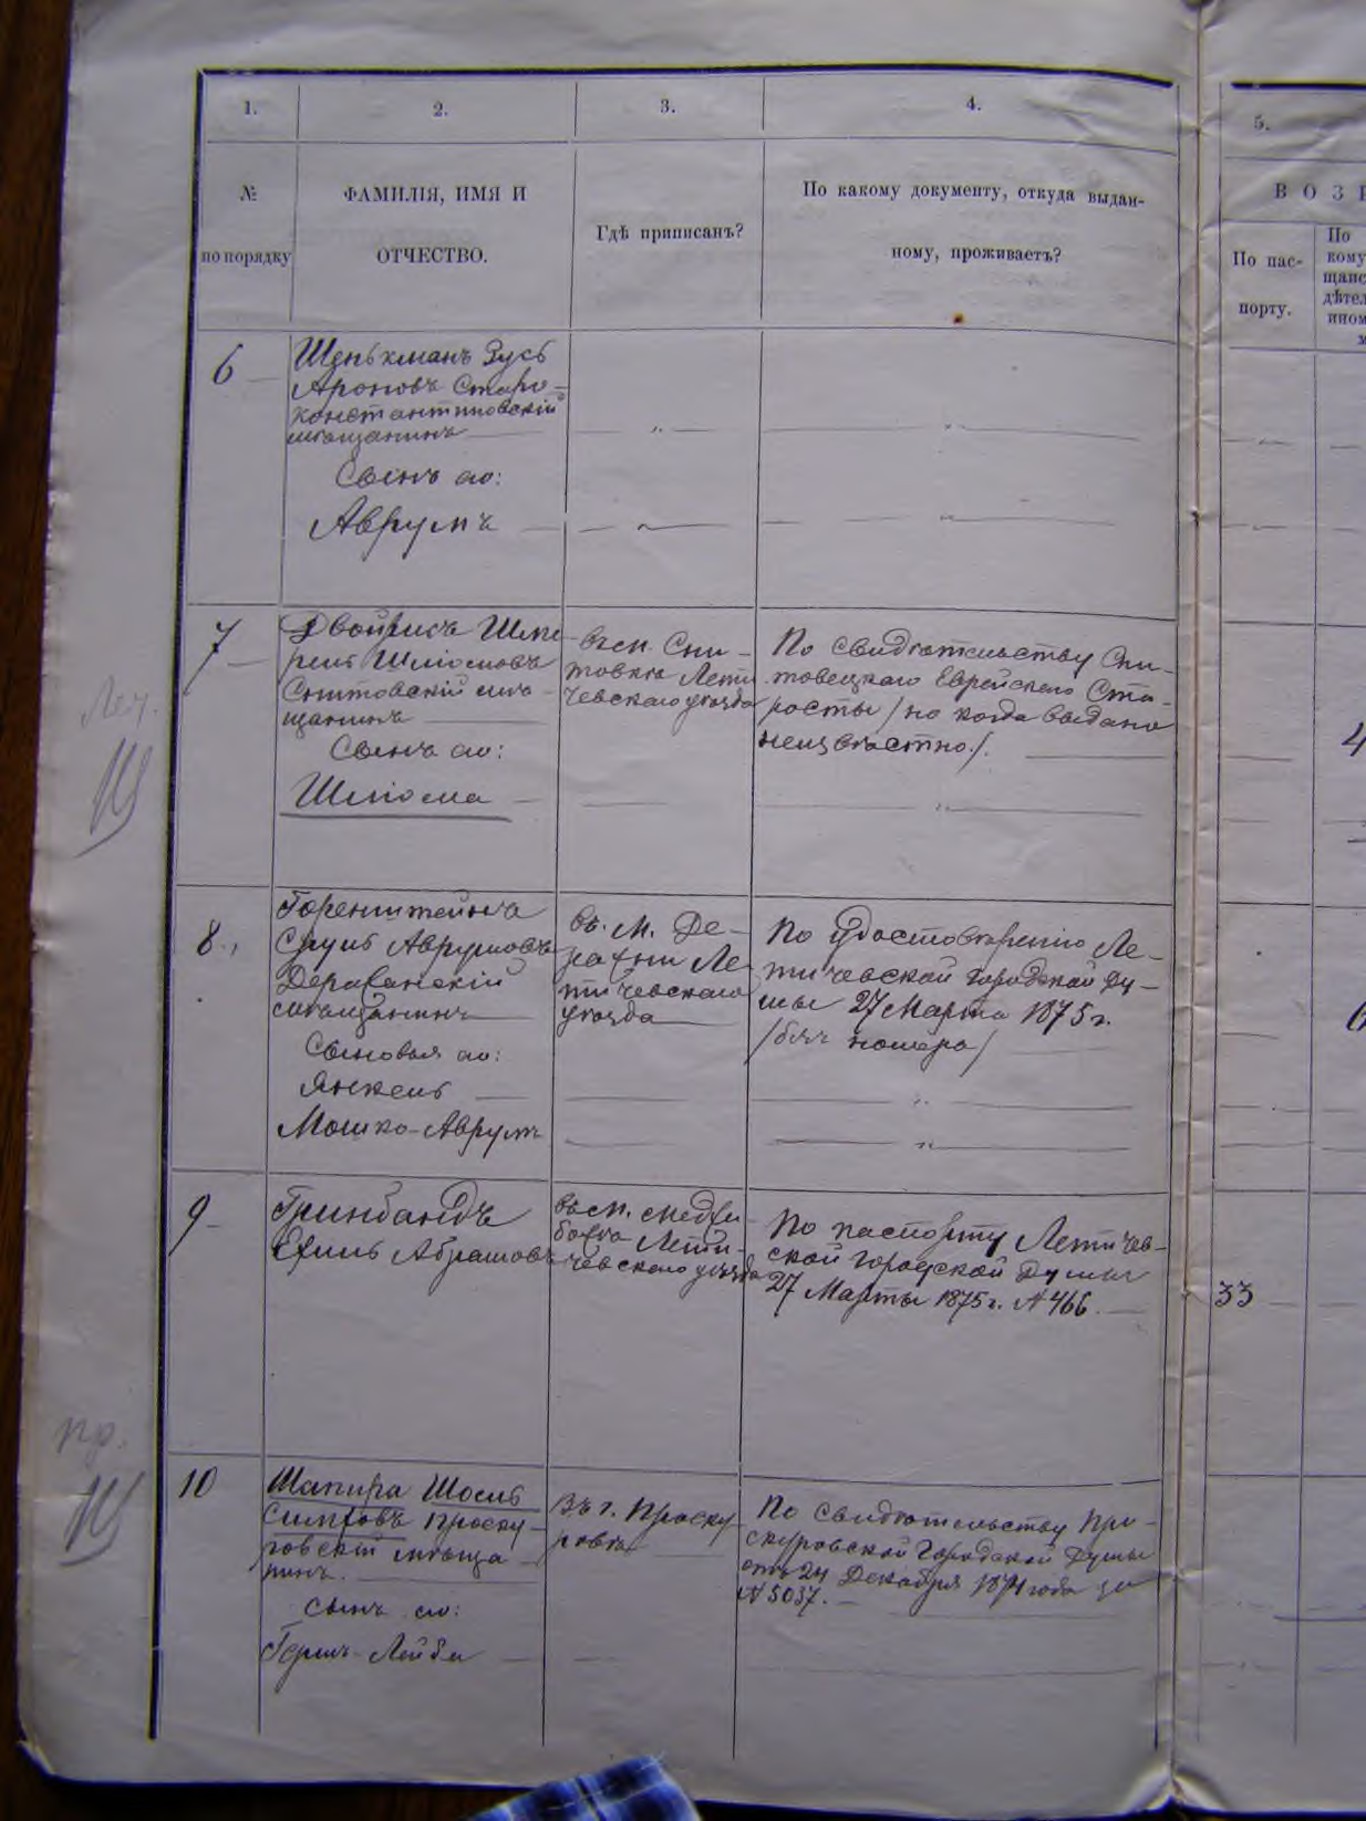 1.
2.
3.
4.
5.
№
по порядку
ФАМИЛІЯ, ИМЯ И
ОТЧЕСТВО.
Гдѣ приписанъ?
По какому документу, откуда выдан-
ному, проживаетъ?
По пас-
порту.
По
кому
6
Ароновъ Старо-
константиновскій
мѣщанинъ
Сынъ его:
Аврумъ
7
Шліомовъ
Снитовскій мѣ-
щанинъ
Сынъ его:
Шліома
въ м. Сни-
товкѣ Лети
чевскаго уѣзда
По свидѣтельству Сни-
товецкаго Еврейскаго Ста-
росты /но когда выдано
неизвѣстно/.
4
8.
Горенштейнъ
Сруль Аврумовъ
Деражнскій
мѣщанинъ
Сыновья его:
Янкель
Мошко-Аврумъ
въ. М. Де-
ражни Ле
тичевскаго
уѣзда
По Удостовѣренію Ле-
тичевской городской Ду-
мы 27 Марта 1875 г.
/безъ номера/
6
9
Гринбандъ
Абрамовъ
въ м. Меджи
божѣ Лети-
чевскаго уѣзда
По паспорту Летичев-
ской Городской Думы
27 Марта 1875 г. № 466.
33
пр.
10
Шапира Шоель
Симховъ Проску-
ровскій мѣща
нинъ.
сынъ его:
Гершъ-Лейба
Въ г. Проску
ровѣ
По свидѣтельству Про-
скуровской Городской Думы
отъ 24 Декабря 1874 года за
№ 5037.